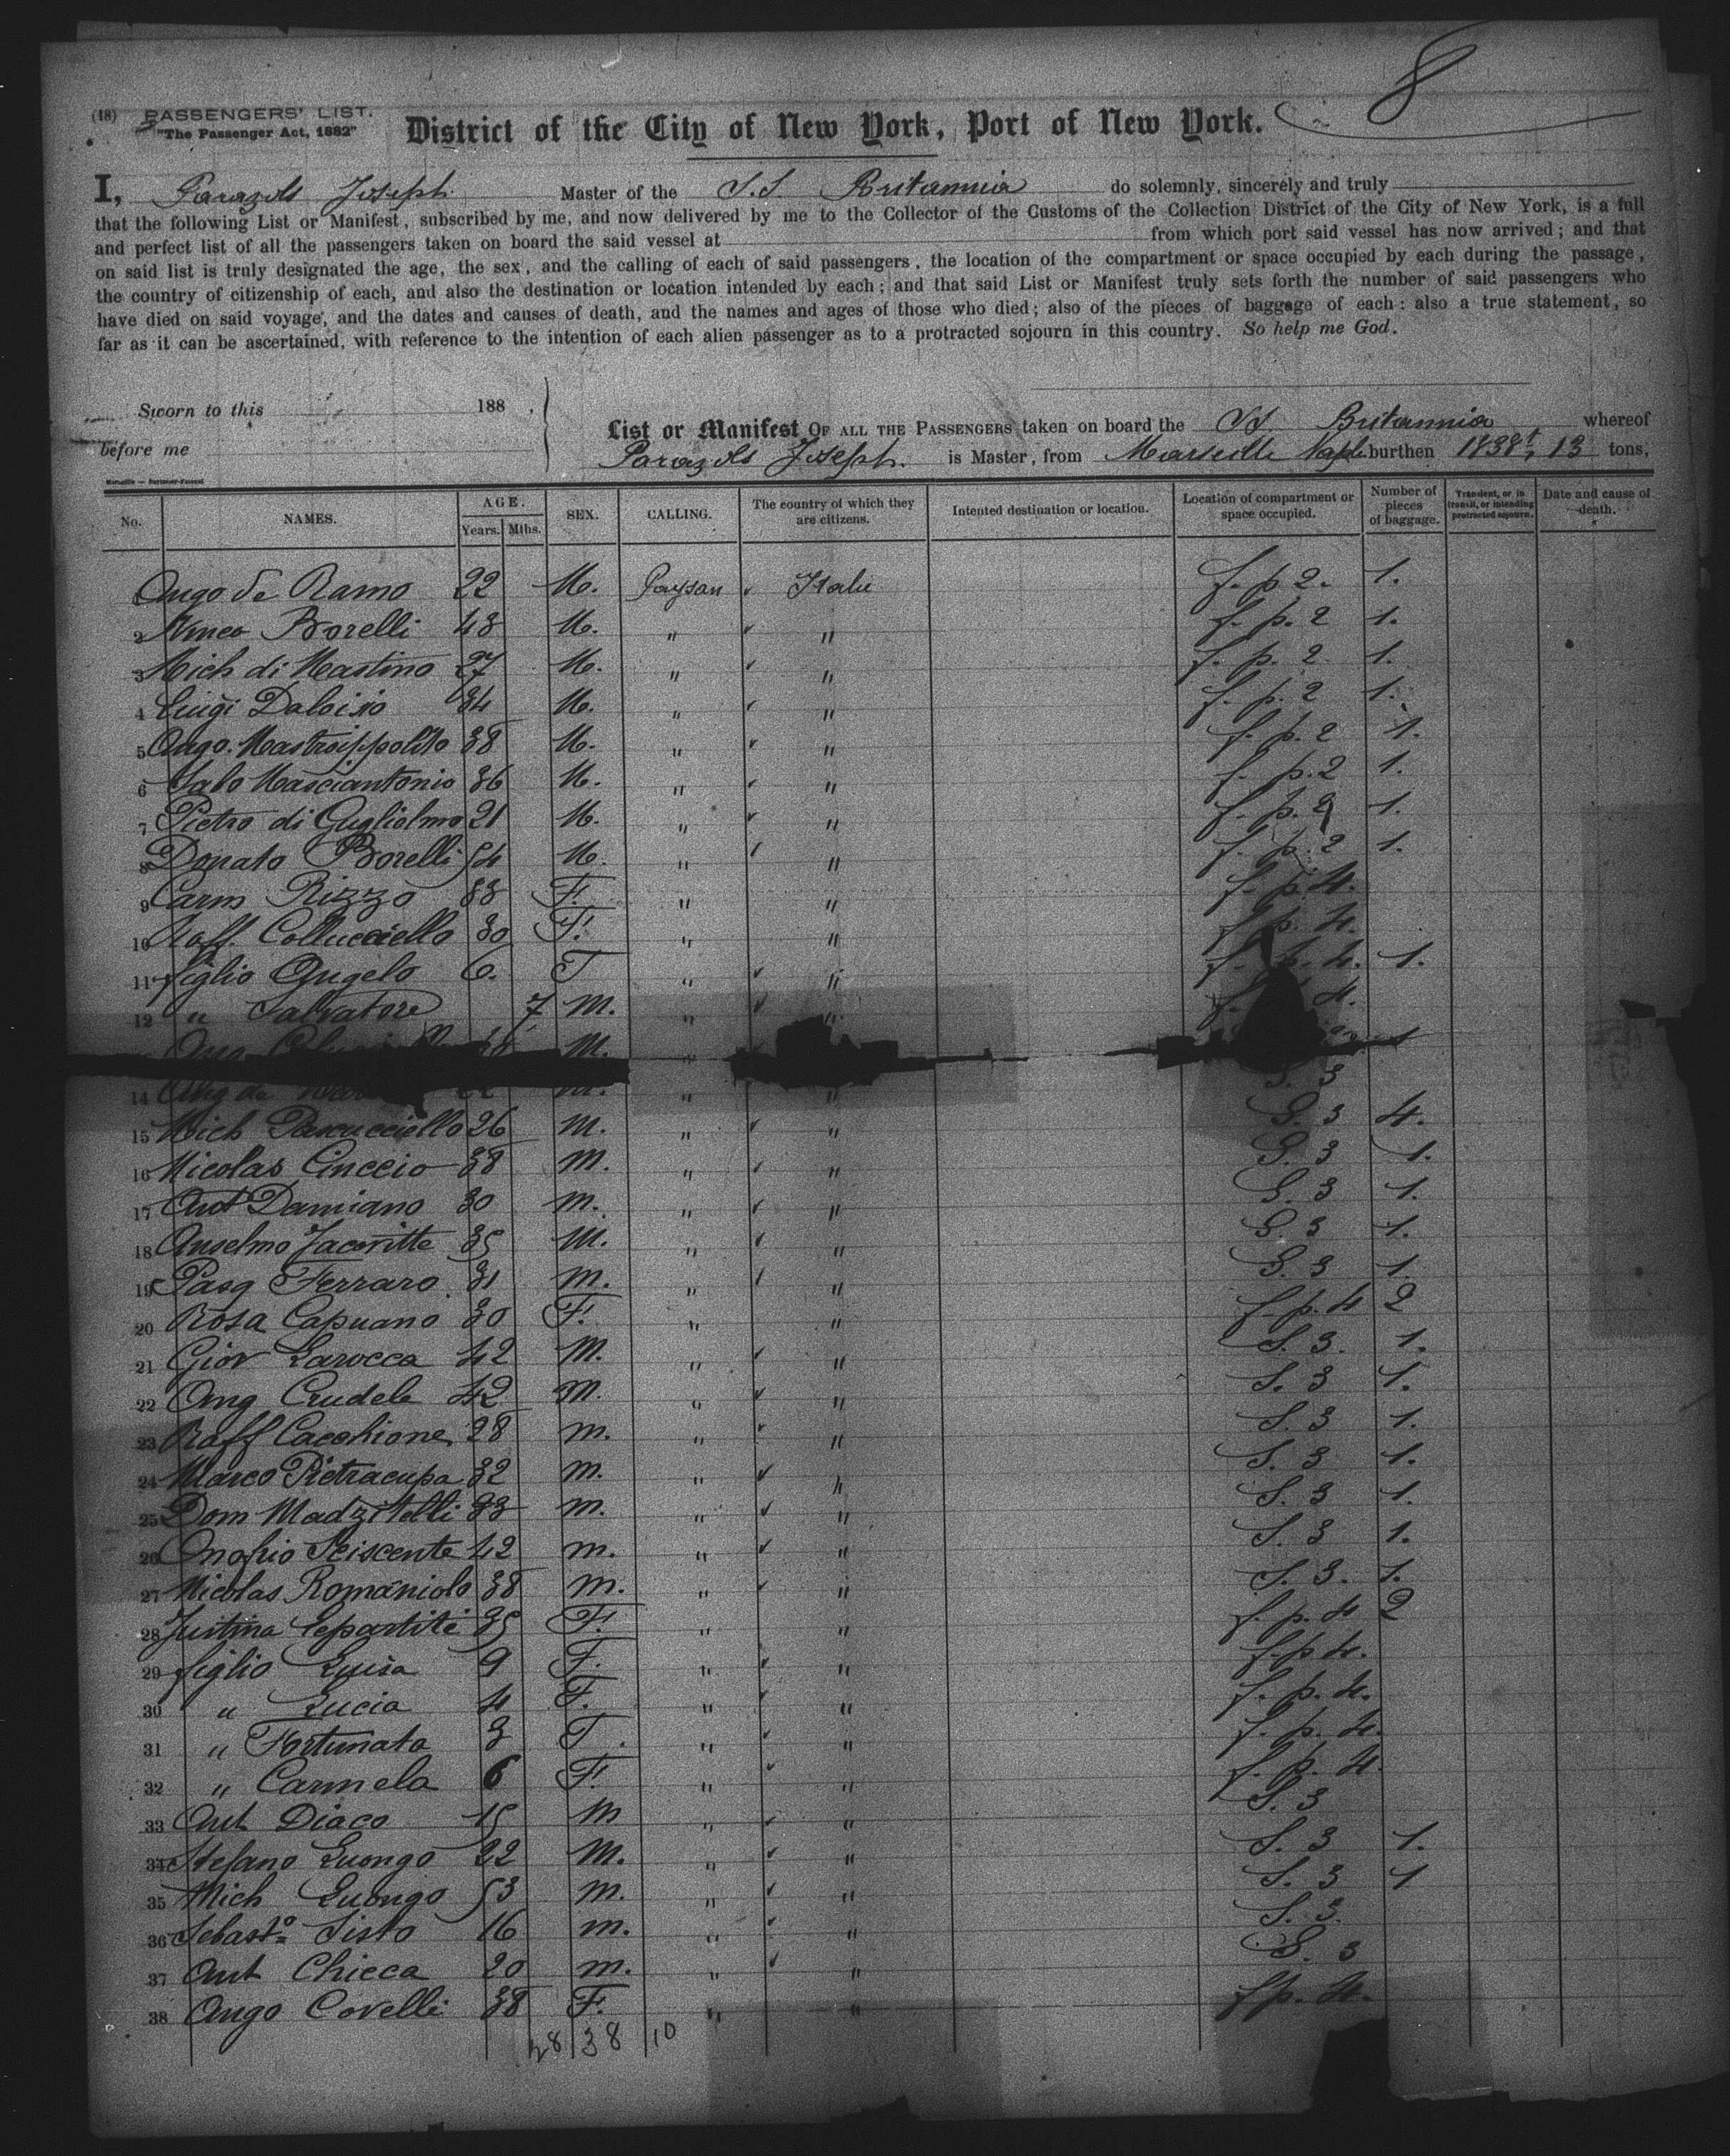 8
(18) PASSENGERS' LIST.
"The Passenger Act, 1882"
District of the City of New York, Port of New York.
I, Parazols Joseph Master of the S.S Britannia do solemnly, sincerely and truly
that the following List or Manifest, subscribed by me, and now delivered by me to the Collector of the Customs of the Collection District of the City of New York, is a full
and perfect list of all the passengers taken on board the said vessel at from which port said vessel has now arrived; and that
on said list is truly designated the age, the sex, and the calling of each of said passengers, the location of the compartment or space occupied by each during the passage,
the country of citizenship of each, and also the destination or location intended by each; and that said List or Manifest truly sets forth the number of said passengers who
have died on said voyage, and the dates and causes of death, and the names and ages of those who died; also of the pieces of baggage of each: also a true statement, so
far as it can be ascertained, with reference to the intention of each alien passenger as to a protracted sojourn in this country. So help me God.
Sworn to this 188 ,
before me
List or Manifest OF ALL THE PASSENGERS taken on board the SS Britannia whereof
Parazols Joseph. is Master, from Marseille Naple burthen 1838t, 13 tons,
No. NAMES. AGE. Years. Mths. SEX. CALLING. The country of which they are citizens. Intented destination or location. Location of compartment or space occupied. Number of pieces of baggage. Transient, or in transit, or intending protracted sojourn. Date and cause of death.
Ango de Ramo 22 M. Paysan Italie f. p 2. 1.
2 Borelli 48 M. " " f. p. 2 1.
3 Mich di Mastino 27 M. " " f. p. 2 1.
4 Luigi Daloisio 34 M. " " f. p. 2 1.
5 Ango. Mastroippolito 38 M. " " f. p. 2 1.
6 Masciantonio 36 M. " " f. p. 2 1.
7 Pietro di Guglielmo 21 M. " " f. p. 2 1.
8 Donato Borelli 54 M. " " f. p. 2 1.
9 Carm Rizzo 38 F. " " f. p. 4.
10 Raff. Collucciello 30 F. " " f. p. 4.
11 figlio Angelo 6. F " " f. p. 4. 1.
12 " Salvatore 7 M. " " f. 4.
Ang M. " 1
14 Ang de " " S. 3
15 Mich Pascucciello 26 M. " " S. 3 4.
16 Nicolas Cinccio 38 M. " " S. 3 1.
17 Ant Damiano 30 M. " " S. 3 1.
18 Anselmo Jacovitte 35 M. " " S. 3 1.
19 Pasq Ferraro 31 M. " " S. 3 1.
20 Rosa Capuano 30 F. " " f. p. 4 2
21 Giov Larocca 42 M. " " S. 3. 1.
22 Ang Crudele 42 M. " " S. 3 1.
23 Raff Cacchione 28 M. " " S. 3 1.
24 Marco Pietracupa 32 M. " " S. 3 1.
25 Dom Madzitelli 33 M. " " S. 3 1.
26 Onofrio Sciscente 42 M. " " S. 3 1.
27 Nicolas Romaniolo 38 M. " " S. 3. 1.
28 Justina Lepartite 35 F. " " f. p. 4 2
29 figlio Luisa 9 F. " " f. p 4.
30 " Lucia 4 F. " " f. p. 4.
31 " Fortunata 3 F. " " f. p. 4.
32 " Carmela 6 F. " " f. p. 4.
33 Ant Diaco 15 M " " S. 3
34 Stefano Luongo 22 M. " " S. 3 1.
35 Mich Luongo 53 M. " " S. 3 1
36 Sebasto Sisto 16 M. " " S. 3.
37 Ant Chieca 20 M. " " S. 3
38 Ango Covelli 38 F. " " f p. 4.
28 38 10